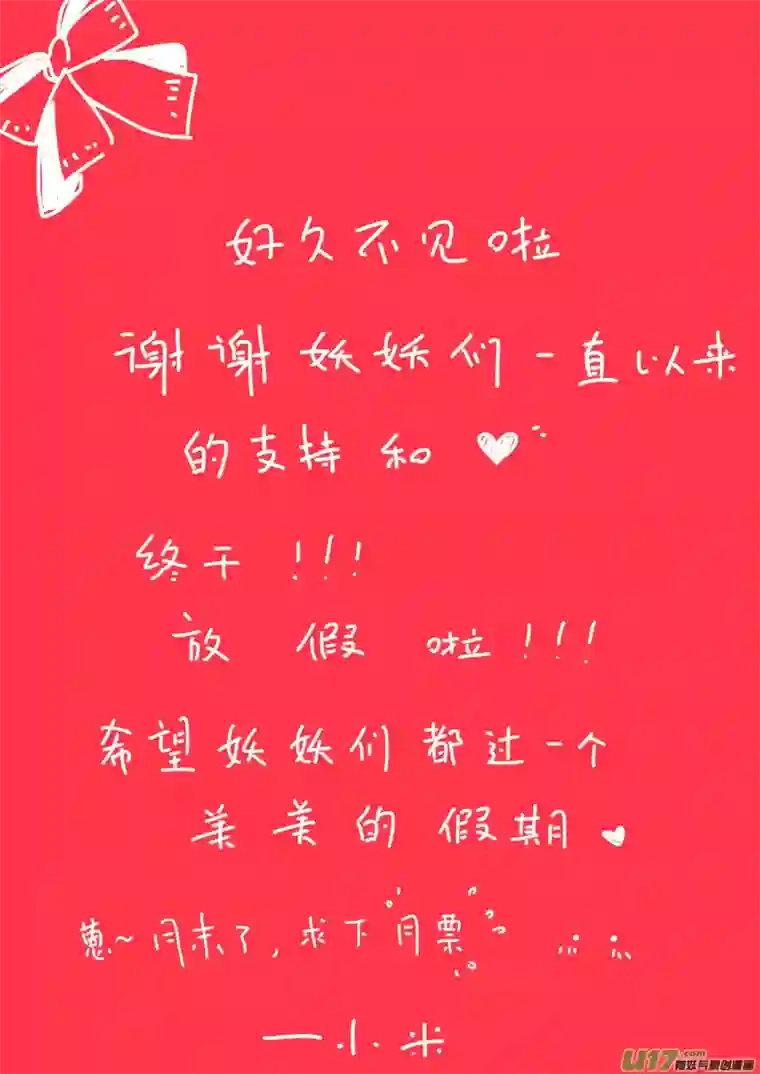 好久不见啦
谢谢妖妖们一直以来
的支持和
终于!!!
放假啦!!!
希望妖妖们都过一个
美美的假期
葱~月末了,求下月票
一小米
U17.com
有妖气原创漫画